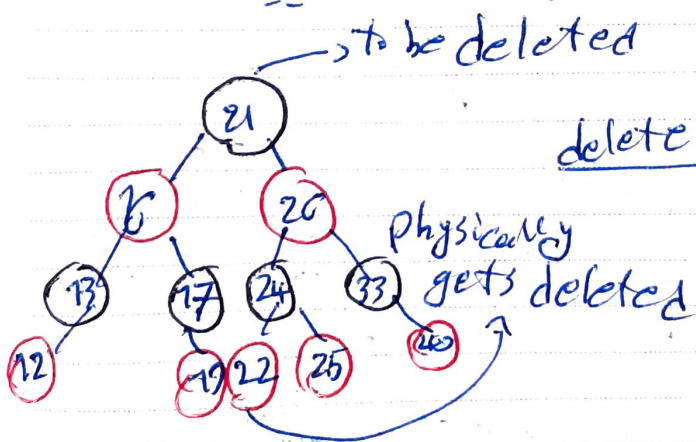 to be deleted
21
delete
16 26
physically
gets deleted
13 17 24 33
12 19 22 25 40